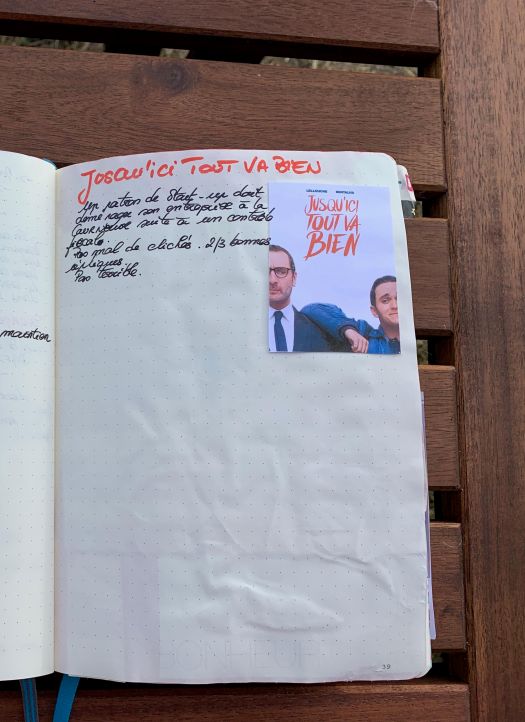 JUSQU'ICI TOUT VA BIEN
Un patron de Start-up doit
déménager son entreprise à la
Courneuve suite à un contrôle
fiscale.
Pas mal de clichés. 2/3 bonnes
répliques.
Pas terrible.
LELLOUCHE BENTALHA
JUSQU'ICI
TOUT VA
BIEN
39